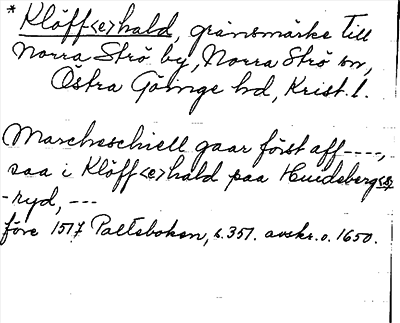 * Klöff<e>hald, gränsmärke till
Norra Strö by, Norra Strö sn,
Östra Göinge hd, Krist. l.
Marcheschiell gaar först aff ----,
saa i Klöff<e>hald paa Huidsberg<s>
-ryd, ---
före 1517 Palteboken, s. 351. avskr. o. 1650.